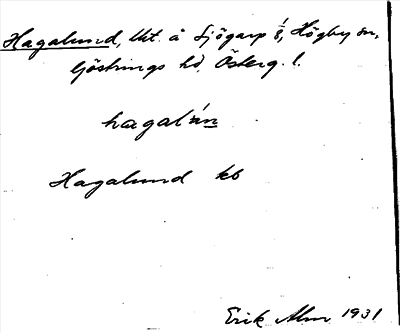 Hagalund, lht. å Sjögarp 1/8, Högby sn,
Göstrings hd, Österg. l.
hagalún
Hagalund kb
Erik Alm 1931